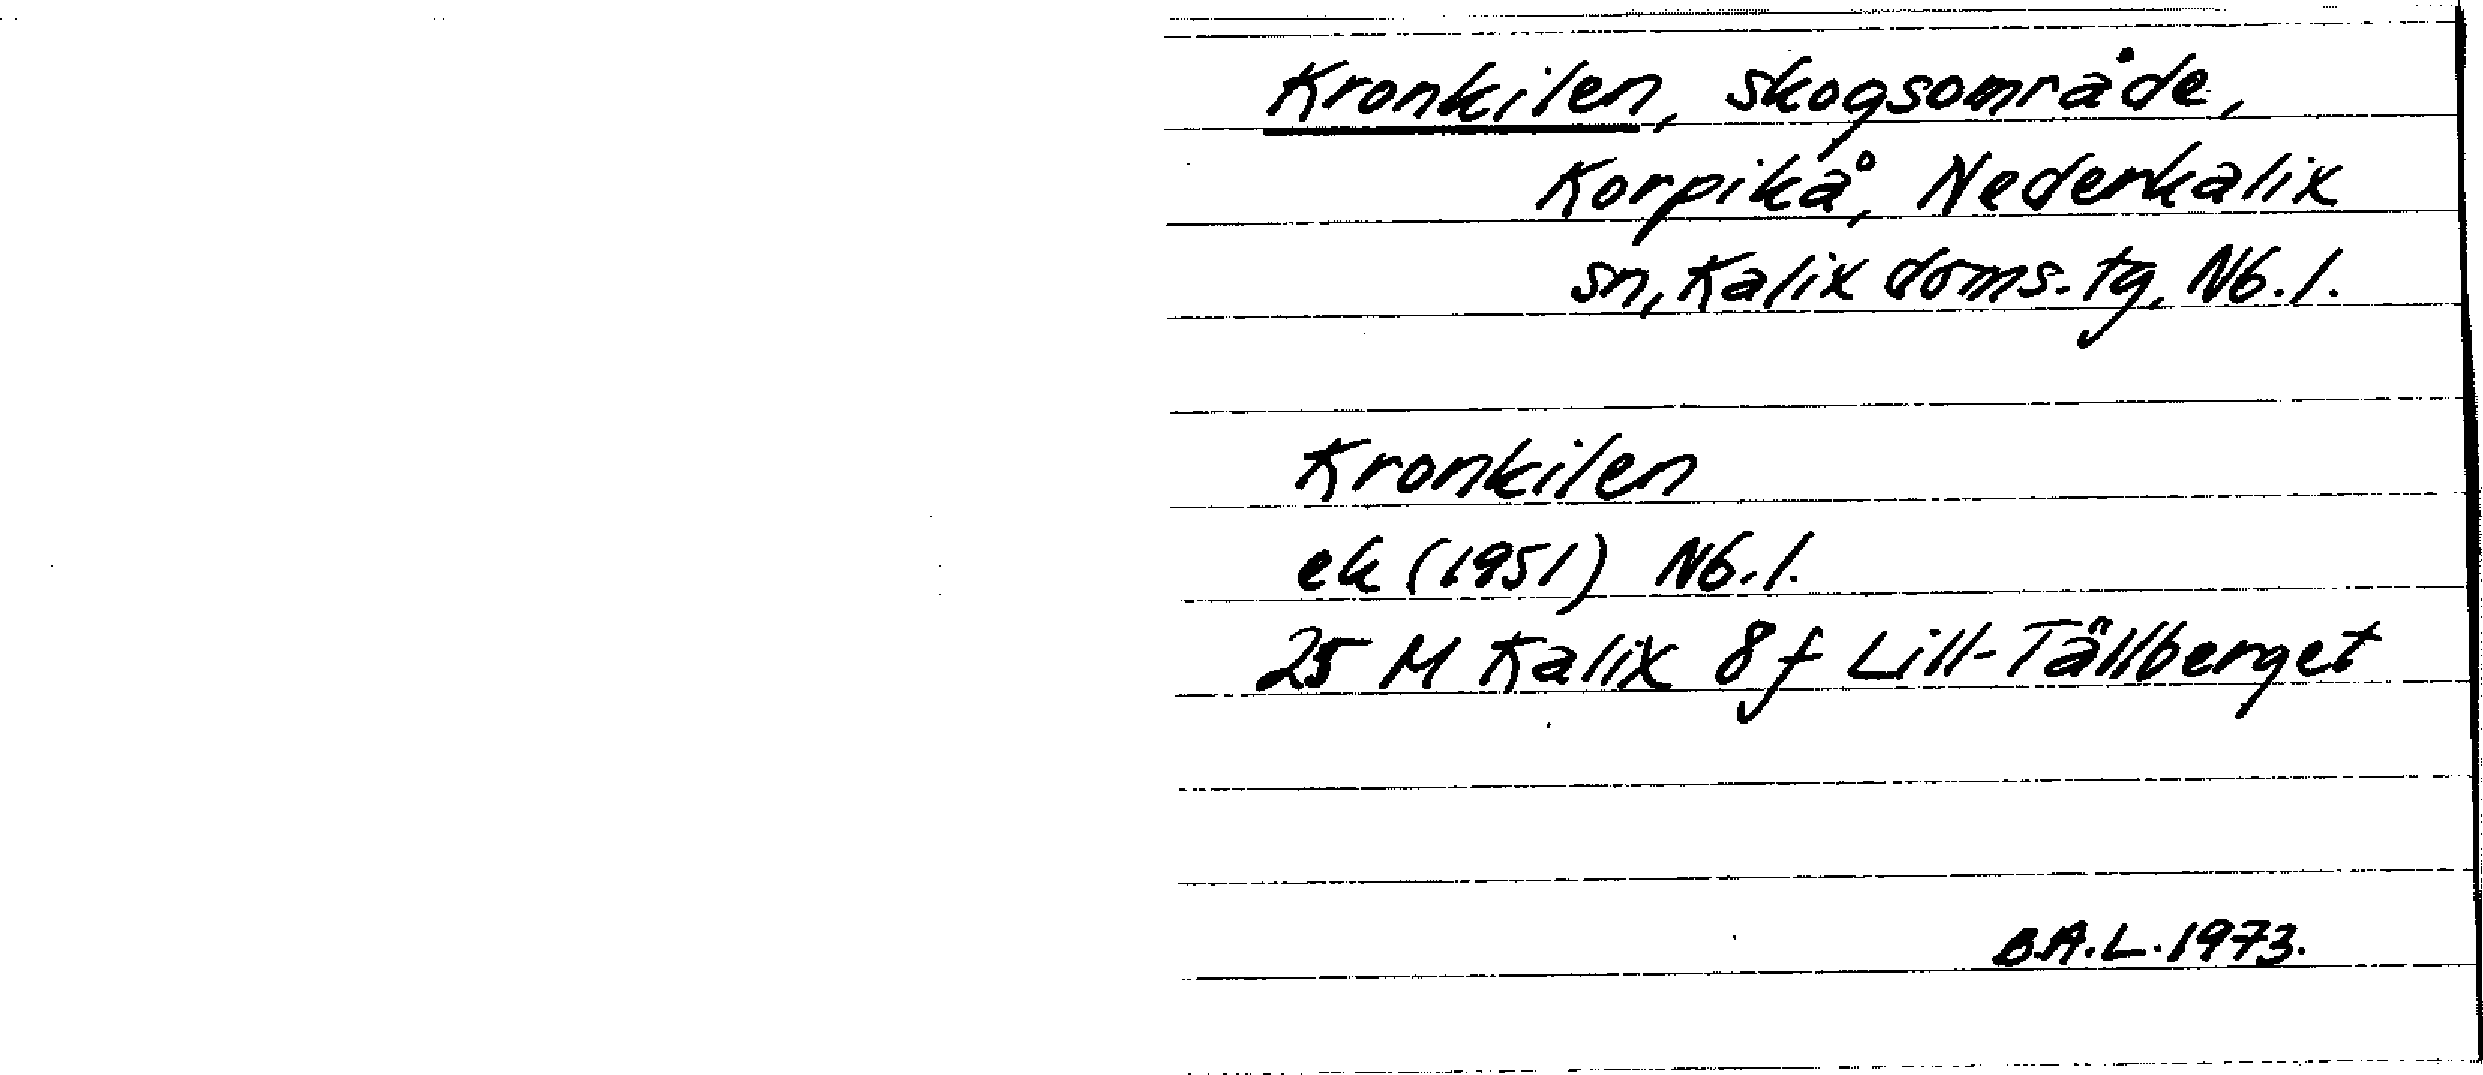 Kronkilen, skogsområde,
Korpikå, Nederkalix
sn, Kalix doms. tg, Nb. l.
Kronkilen
ek (1951) Nb. l.
25 M Kalix 8 f Lill-Tällberget
B.A.L. 1973.